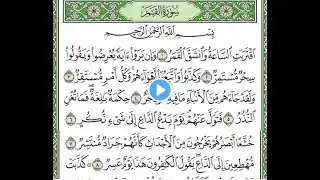 سُورَةُ القَمَرِ
بِسْمِ اللَّهِ الرَّحْمَٰنِ الرَّحِيمِ
اقْتَرَبَتِ السَّاعَةُ وَانشَقَّ الْقَمَرُ ۝١ وَإِن يَرَوْا ءَايَةً يُعْرِضُوا وَيَقُولُوا
سِحْرٌ مُّسْتَمِرٌّ ۝٢ وَكَذَّبُوا وَاتَّبَعُوا أَهْوَاءَهُمْ وَكُلُّ أَمْرٍ مُّسْتَقِرٌّ ۝٣
وَلَقَدْ جَاءَهُم مِّنَ الْأَنبَاءِ مَا فِيهِ حِكْمَةٌ بَٰلِغَةٌ فَمَا تُغْنِ
النُّذُرُ ۝٥ فَتَوَلَّ عَنْهُمْ يَوْمَ يَدْعُ الدَّاعِ إِلَىٰ شَيْءٍ نُّكُرٍ ۝٦
خُشَّعًا أَبْصَٰرُهُمْ يَخْرُجُونَ مِنَ الْأَجْدَاثِ كَأَنَّهُمْ جَرَادٌ مُّنتَشِرٌ ۝٧
مُّهْطِعِينَ إِلَى الدَّاعِ يَقُولُ الْكَٰفِرُونَ هَٰذَا يَوْمٌ عَسِرٌ ۝٨ كَذَّبَتْ